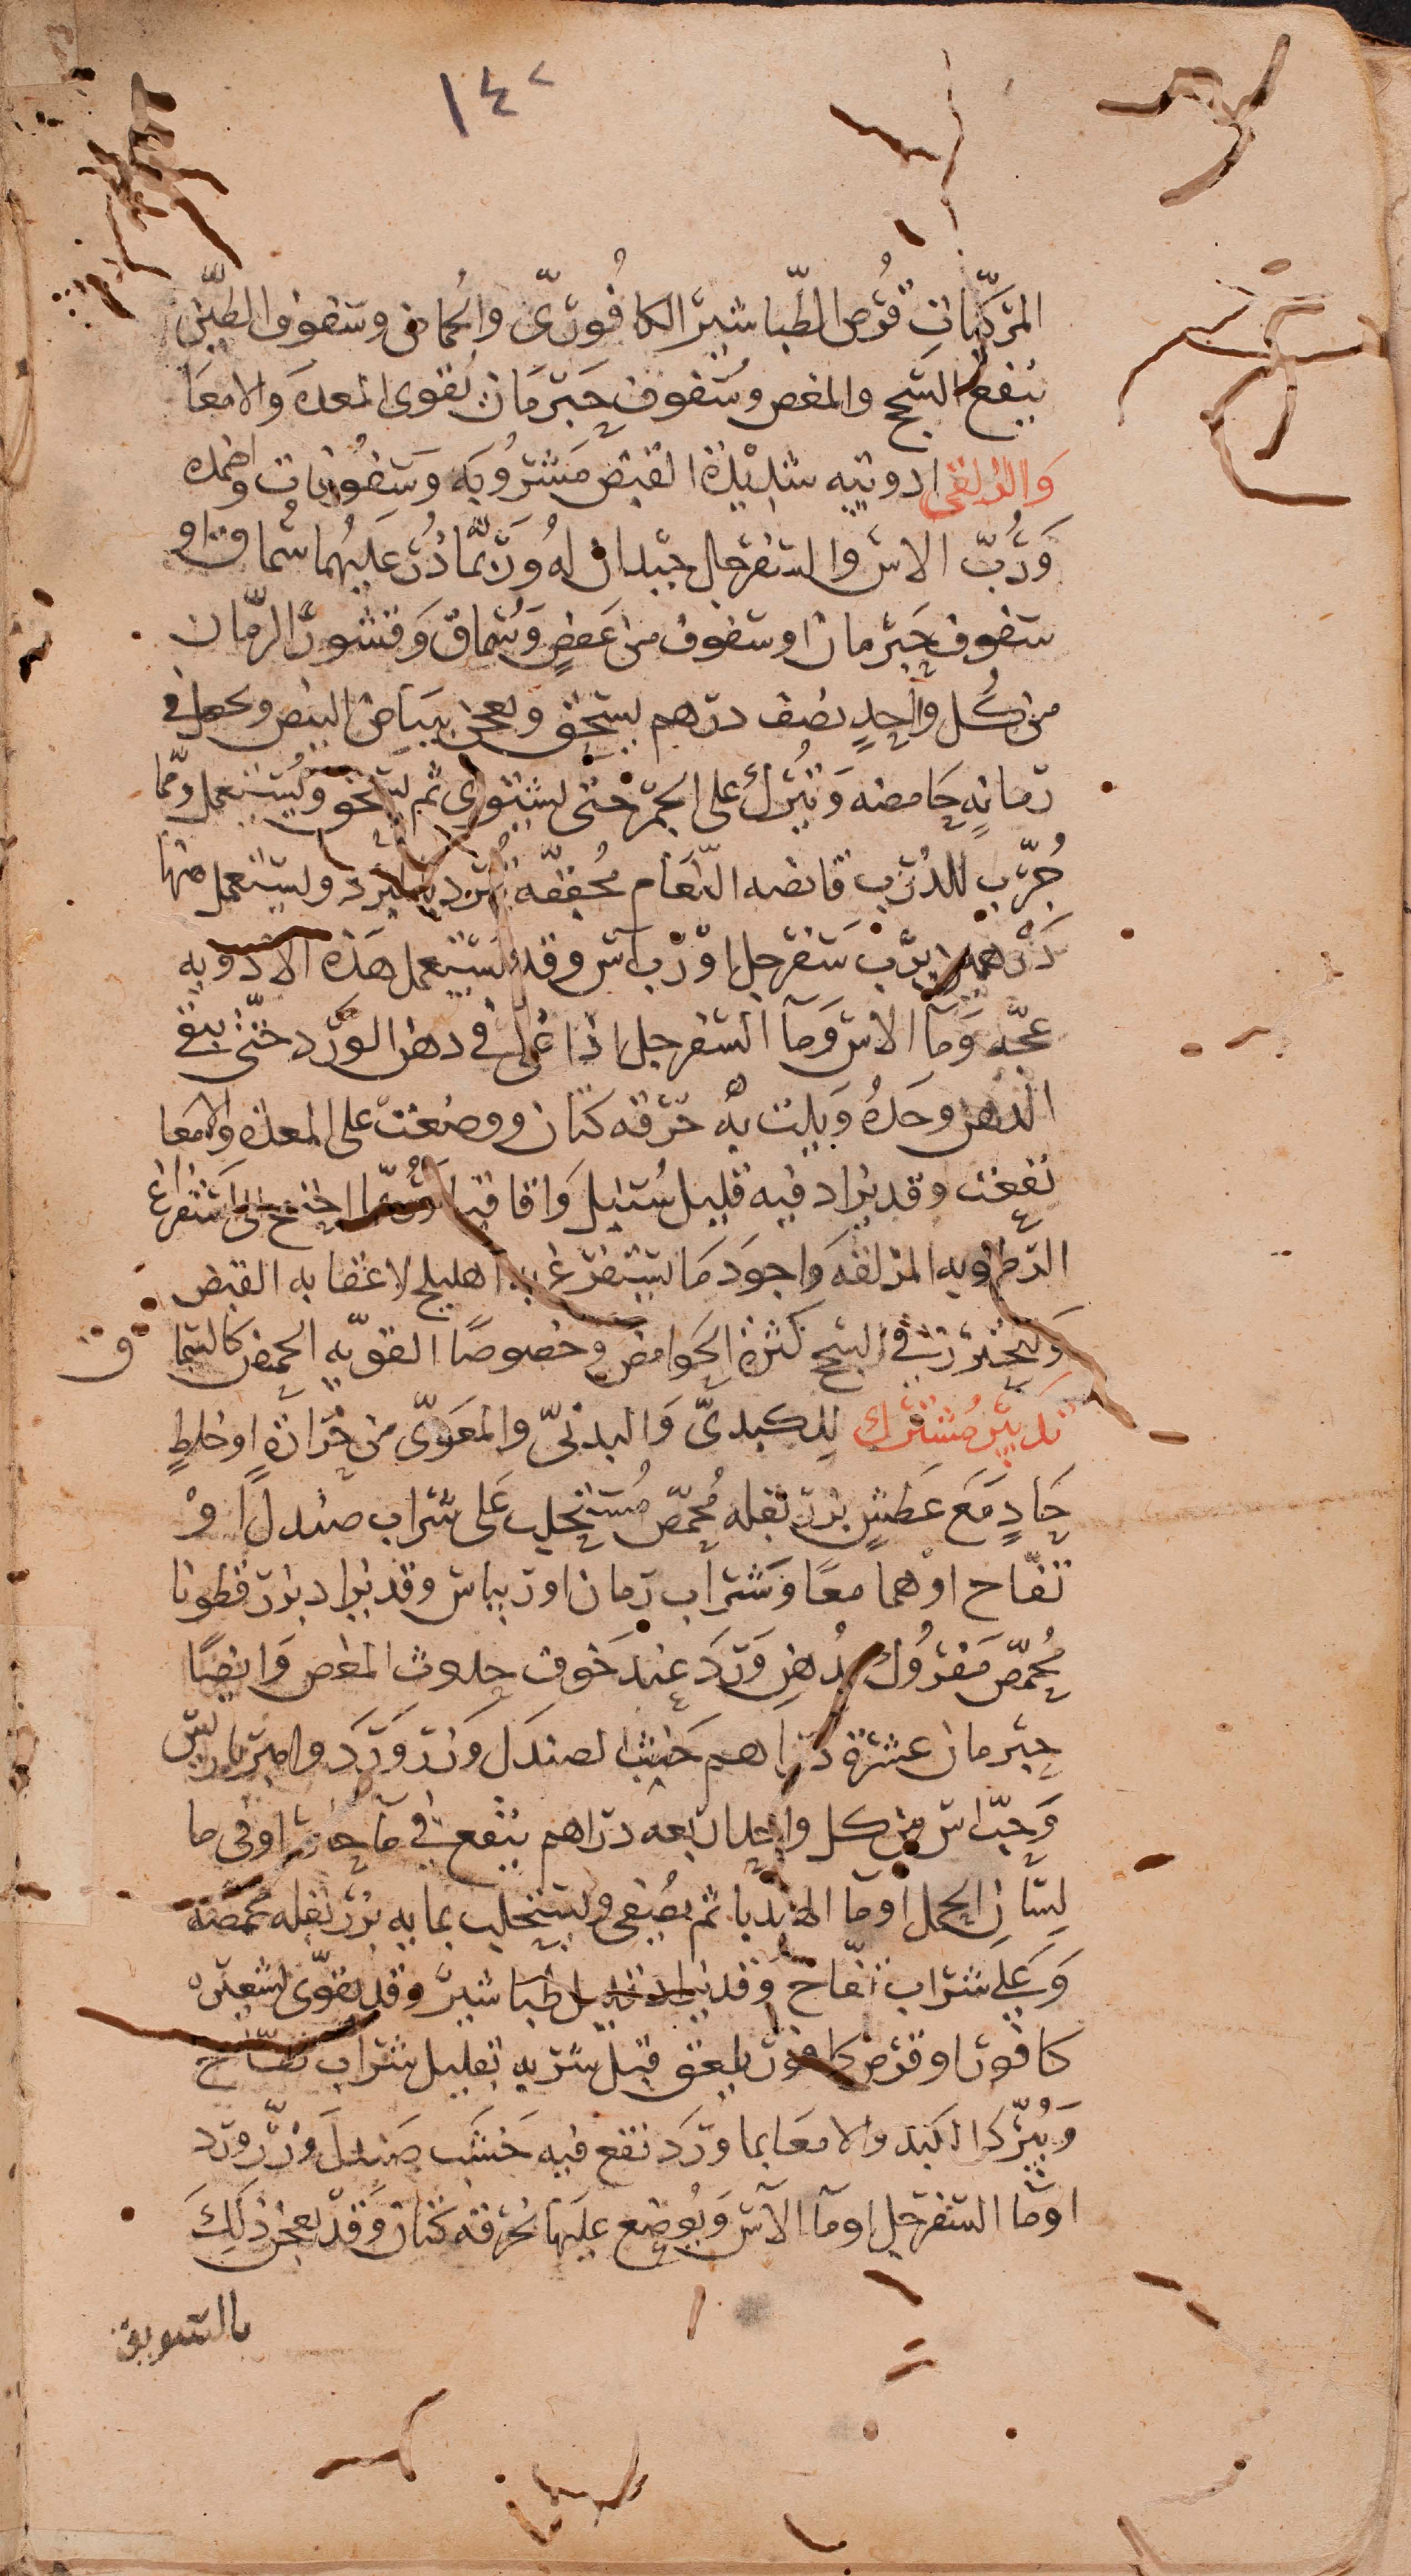 ١٤٢
المركّبات قُرص الطّباشير الكافُورىّ والحماض وسفوف الطّين
ينفع السَّحج والمغص وسُفوف حَبّ رمّان يُقوى المعدَه والامعَا
وَالزلقى ادوييه شدِيْدة القبض مَشرُوبَه وَسَفُوفات واضمده
وَرُبّ الاس والسفرجل جيدان لهُ ورَبّمَا ذُرّ عليهُما سُماق او
سفوف حَبّ رمان او سفوف من عَفصٍ وَسُماقٍ وَقشورِ الرّمان
من كُل واحِدٍ نصف درهم يسحق ويعجن ببيَاض البيض ويجعل فى
رمانهٍ حَامضه وَتُتركُ على الجمْر حتى يشتوى ثم يسحق ويُستعمل ومّما
جُرّب للذرب قانصه النّعَام مُجففّه تُبرد بالمبرد ويستعمل منها
دَرْهم بُربّ سَفرجل اوْ رُبّ آس وقد تُستعمل هَذه الادْويه
عجّه وَمآ الاس وَمآ السفرجل اذا غُلى فى دهن الورْد حتّى يبقى
الدهن وحَدهُ وَبلت بهْ خرْقه كتان ووضعت على المعده والامعا
نفعت وقد يزاد فيه قليل سُنبل وَاقاقيا وَرُبّما احتيج الى استفراغ
الرّطوبه المزلقه وَاجوَد مَا يستفرغ به اهليلج لاعقابه القبض
وَليُحذر فى السحج كثرة الحوامض وخصوصًا القويّه الحمض كالسّماق
تدبيْر مُشترك للكبدىّ وَالبدنىّ والمعَوىّ من حَرارة او خلطٍ
حَادٍ مَعَ عَطشٍ بزر بَقله مُحمّص مُستحلب عَلى شراب صندل اوْ
تفّاح اوْهما معًا وَشراب رمان او ريباس وقد يزاد بزر قطونا
مُحمّص مَفرُوك بدُهن وَرَد عند خَوف حدوث المغص وَايضًا
حبّ رمان عشرة درَاهم خَشب الصندَل وَزر وَرَد وامبرباريس
وَحَبّ اس من كل واحد اربعه دراهم ينقع فى مآ حَار او فى ما
لسَان الحمل اومآ الهندبا ثم يُصفى ويستحلب بمايه بزر بقله محمّصه
وَعَلى شراب تفّاح وَقد يزاد قليل طباشير وقد يقوّى بشعيره
كافور او قرص كافور يلعق قبل شربه بقليل شراب تفّاح
وَيُبرّد الكبَد والامعَا بما ورَد نقع فيه خَشَب صندل وزرّ ورَد
اوْمآ السفرجل اومآ الآس وَيُوضع عليها بخرقه كتان وَقدْ يعجن ذلكَ
بالسويق